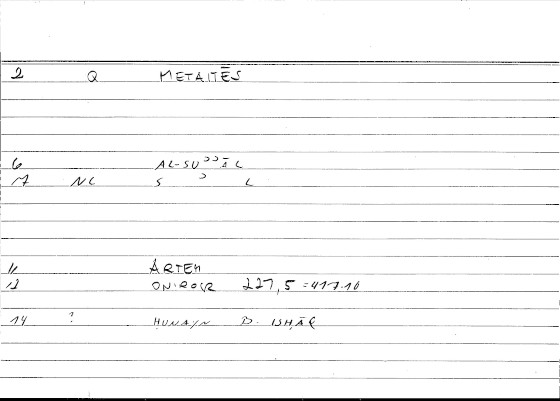 2 Q METAITĒS
6 AL-SUʾʾĀL
17 NL S ʾ L
11 ARTEM
12 ONIROCR 227,5 = 417.10
14 ? ḤUNAYN B. ISḤĀQ